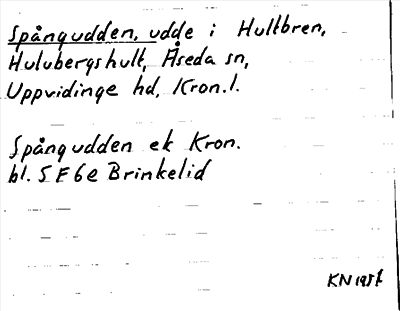 Spångudden, udde i Hultbren,
Hulubergshult, Åseda sn,
Uppvidinge hd, Kron.l.
Spångudden ek Kron.
bl. 5 F 6 e Brinkelid
KN